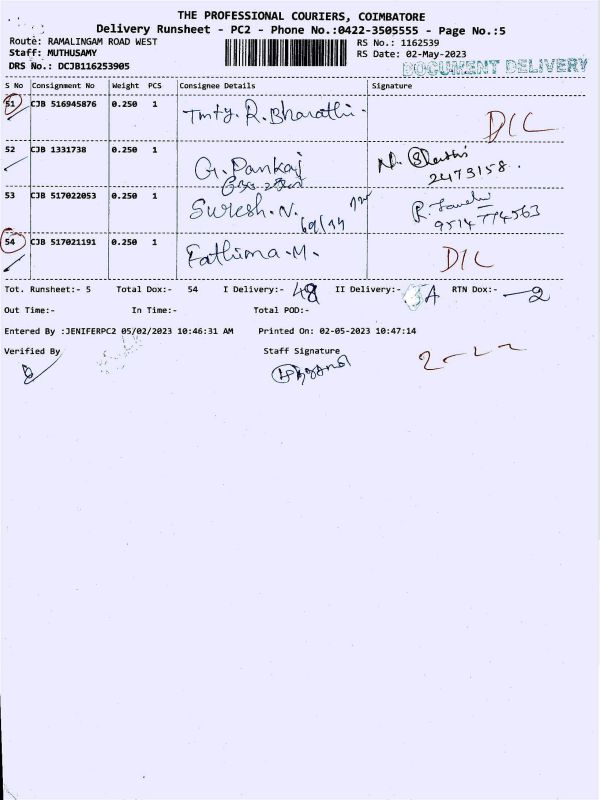 THE PROFESSIONAL COURIERS, COIMBATORE
Delivery Runsheet - PC2 - Phone No.:0422-3505555 - Page No.:5
Route: RAMALINGAM ROAD WEST RS No.: 1162539
Staff: MUTHUSAMY RS Date: 02-May-2023
DRS No.: DCJB116253905 DOCUMENT DELIVERY
S No Consignment No Weight PCS Consignee Details Signature
51 CJB 516945876 0.250 1 Tmty. R. Bharathi. D/C
52 CJB 1331738 0.250 1 G. Pankaj
2473158.
53 CJB 517022053 0.250 1 Suresh. N. R.
9514774563
54 CJB 517021191 0.250 1 Fathima. M. D/C
Tot. Runsheet:- 5 Total Dox:- 54 I Delivery:- 48 II Delivery:- RTN Dox:- 2
Out Time:- In Time:- Total POD:-
Entered By :JENIFERPC2 05/02/2023 10:46:31 AM Printed On: 02-05-2023 10:47:14
Verified By Staff Signature